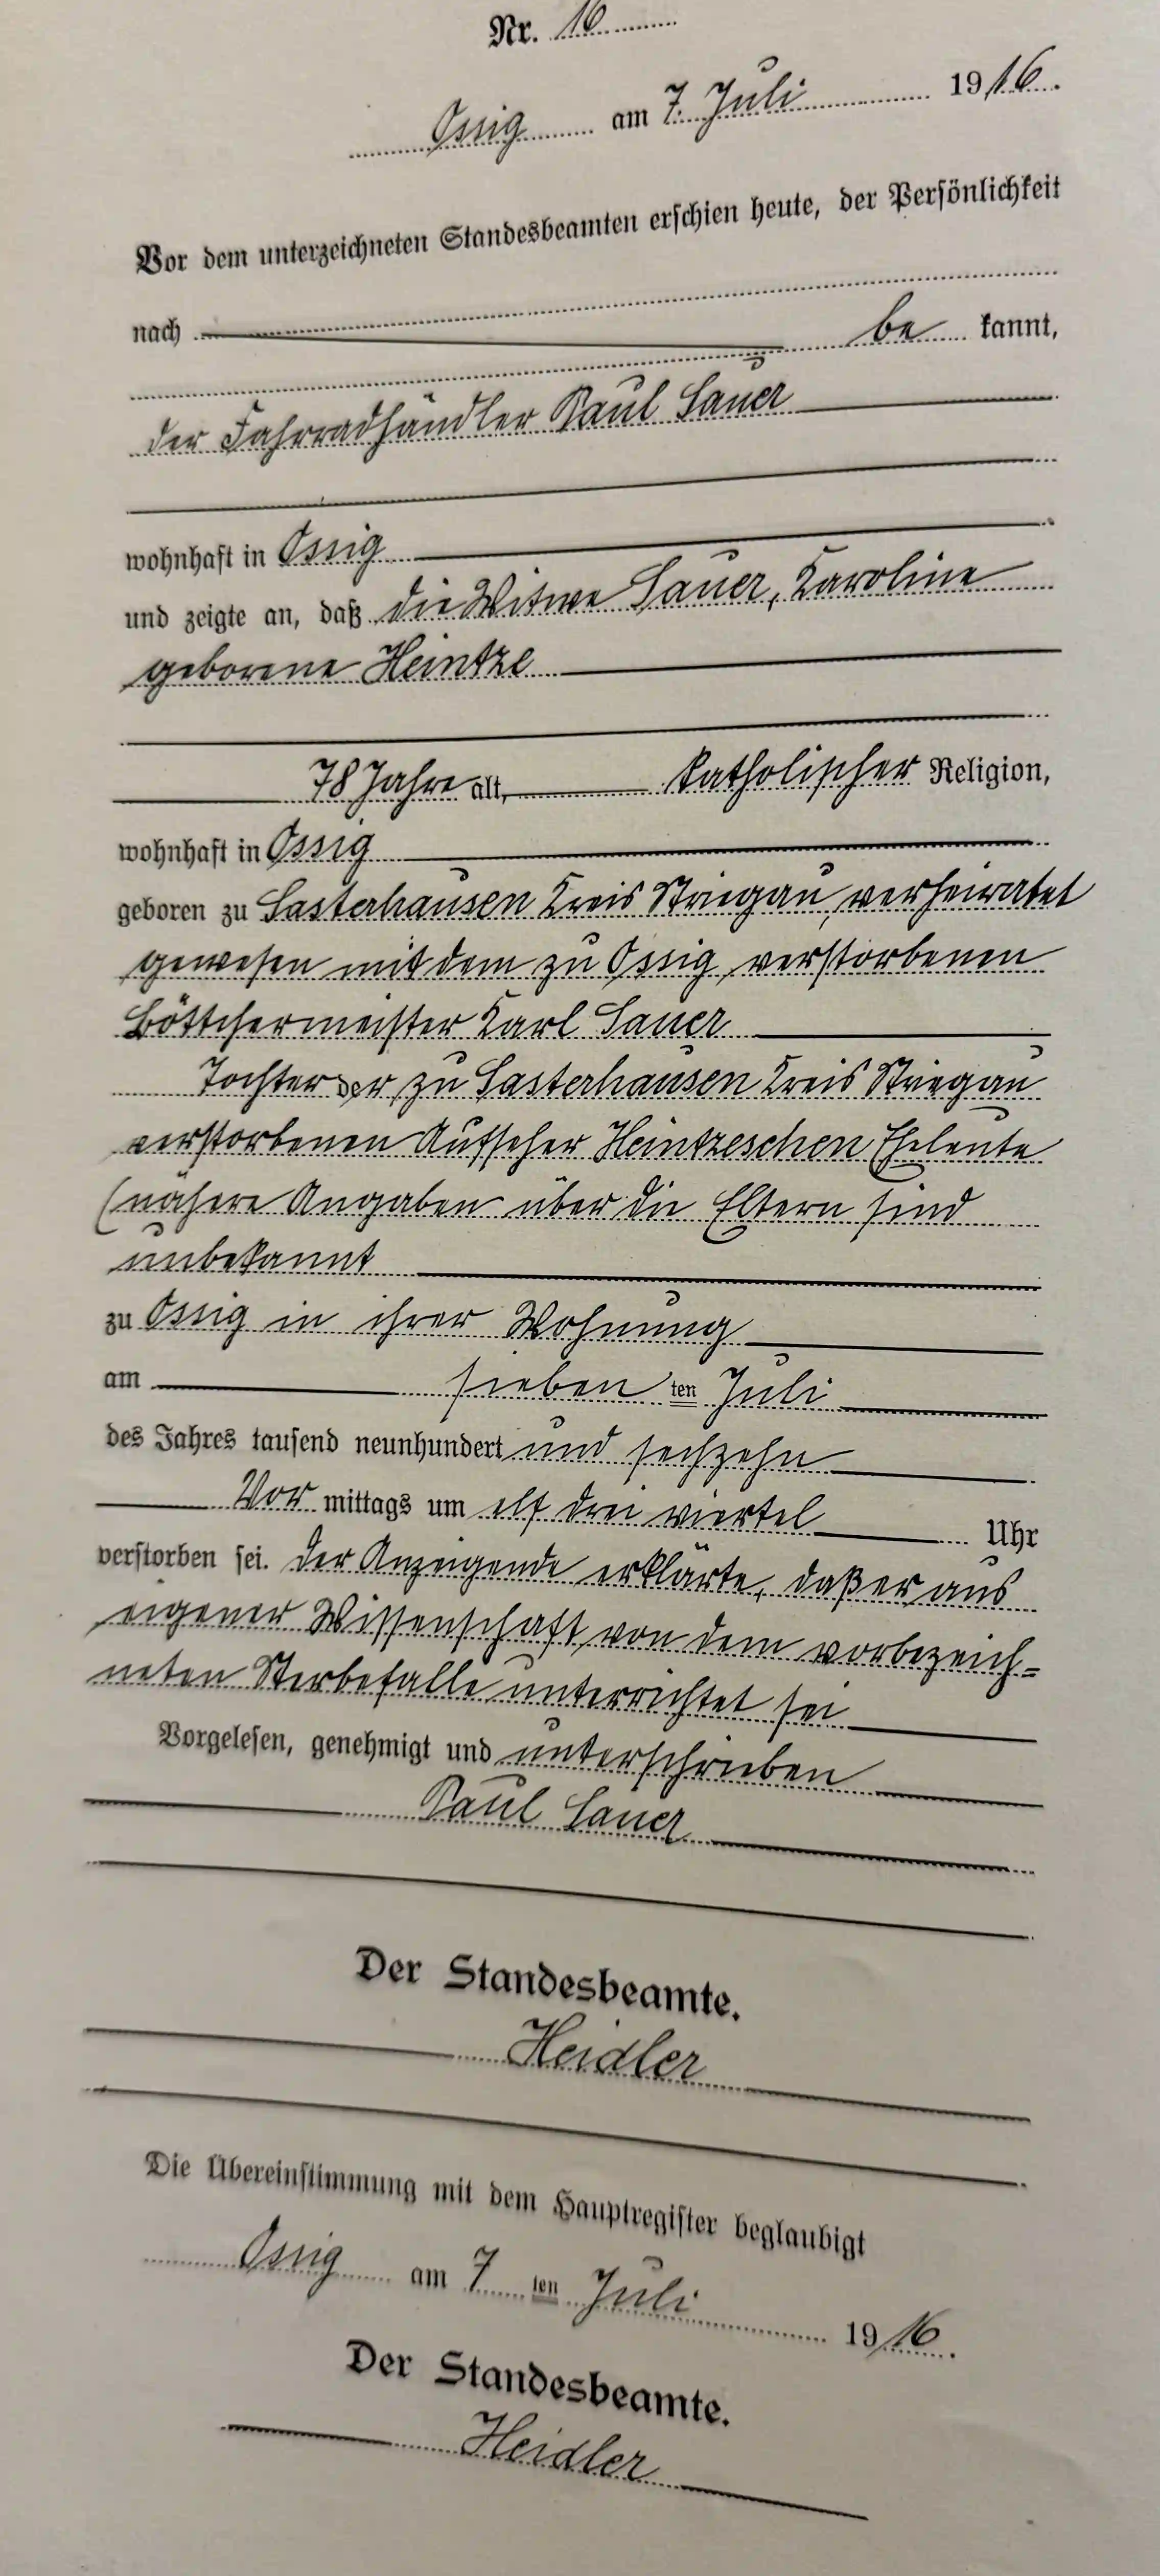 Nr. 16
Ossig am 7. Juli 1916.
Vor dem unterzeichneten Standesbeamten erschien heute, der Persönlichkeit
nach
be kannt,
der Fahrradhändler Paul Sauer
wohnhaft in Ossig
und zeigte an, daß die Witwe Sauer, Karoline
geborene Heintze
78 Jahre alt, katholischer Religion,
wohnhaft in Ossig
geboren zu Sasterhausen Kreis Striegau, verheiratet
gewesen mit dem zu Ossig verstorbenen
Böttchermeister Karl Sauer
Tochter der zu Sasterhausen Kreis Striegau
verstorbenen Aufseher Heintzeschen Eheleute
(nähere Angaben über die Eltern sind
unbekannt
zu Ossig in ihrer Wohnung
am sieben ten Juli
des Jahres tausend neunhundert und sechzehn
Vor mittags um elf drei viertel Uhr
verstorben sei. Der Anzeigende erklärte, daß er aus
eigener Wissenschaft von dem vorbezeich-
neten Sterbefalle unterrichtet sei
Vorgelesen, genehmigt und unterschrieben
Paul Sauer
Der Standesbeamte.
Heidler
Die Übereinstimmung mit dem Hauptregister beglaubigt
Ossig am 7 ten Juli 1916.
Der Standesbeamte.
Heidler